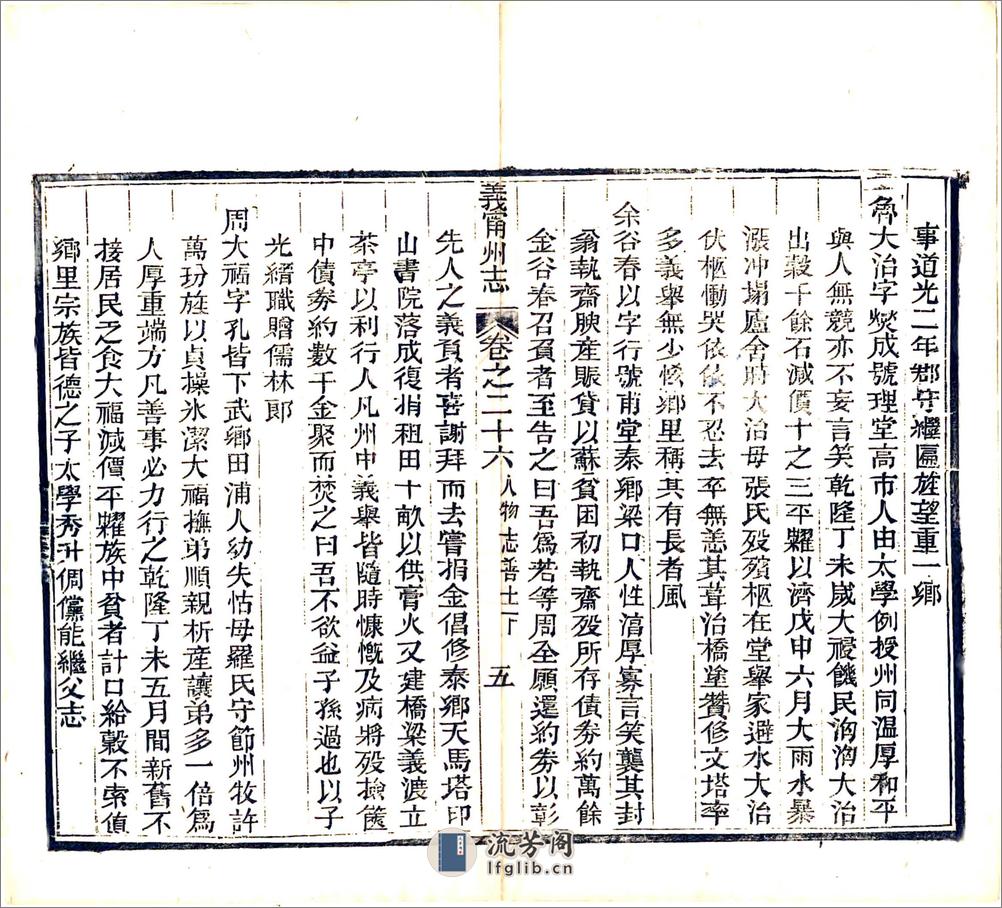 事道光二年郡守繼匾旌望重一鄉
魯大治字爕成號理堂高市人由太學例授州同溫厚和平
與人無競亦不妄言笑乾隆丁未歲大祲饑民洶洶大治
出穀千餘石減價十之三平糶以濟戊申六月大雨水暴
漲冲塌廬舍時大治母張氏殁殯柩在堂舉家避水大治
伏柩慟哭依依不忍去卒無恙其葺治橋塗贊修文塔率
多義舉無少悋鄉里稱其有長者風
余谷春以字行號甫堂泰鄉梁口人性湻厚寡言笑襲其封
翁執齋腴產賑貸以蘇貧困初執齋殁所存債券約萬餘
金谷春召負者至告之曰吾爲若等周全願還約券以彰
義甯州志 卷之二十六 人物志善士下 五
先人之義負者喜謝拜而去嘗捐金倡修泰鄉天馬塔印
山書院落成復捐租田十畝以供膏火又建橋梁義渡立
茶亭以利行人凡州中義舉皆隨時慷慨及病將殁撿篋
中債券約數千金聚而焚之曰吾不欲益子孫過也以子
光縉職贈儒林郎
周大福字孔皆下武鄉田浦人幼失怙母羅氏守節州牧許
萬玢旌以貞操氷潔大福撫弟順親析產讓弟多一倍爲
人厚重端方凡善事必力行之乾隆丁未五月間新舊不
接居民乏食大福減價平糶族中貧者計口給穀不索值
鄉里宗族皆德之子太學秀升倜儻能繼父志
流芳阁
lfglib.cn